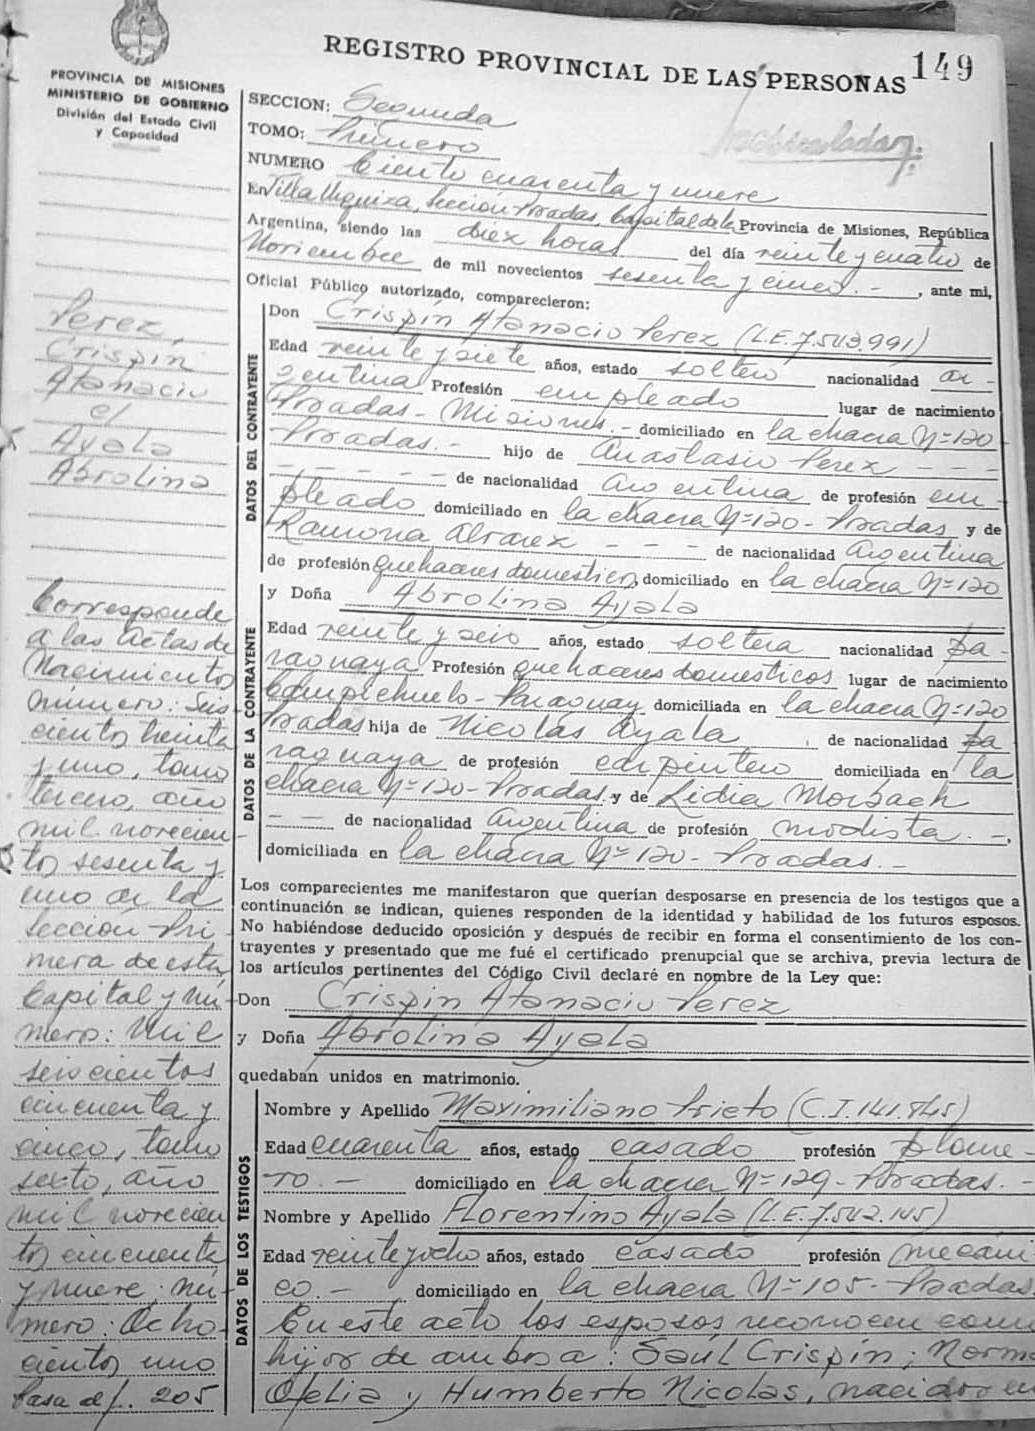 PROVINCIA DE MISIONES
MINISTERIO DE GOBIERNO
División del Estado Civil
y Capacidad
REGISTRO PROVINCIAL DE LAS PERSONAS 149
SECCION: Segunda
TOMO: Primero
NUMERO Ciento cuarenta y nueve
En Villa Urquiza, Sección Posadas, Capital de la Provincia de Misiones, República
Argentina, siendo las diez horas del día veinte y cuatro de
Noviembre de mil novecientos sesenta y cinco.- , ante mi,
Oficial Público autorizado, comparecieron:
DATOS DEL CONTRAYENTE
Don Crispín Atanacio Perez (L.E.7.543.991)
Edad veinte y siete años, estado soltero nacionalidad ar-
gentina Profesión empleado lugar de nacimiento
Posadas - Misiones.- domiciliado en la chacra Nº 120
Posadas.- hijo de Anastasio Perez - - -
- - - - - - de nacionalidad Argentina de profesión em-
pleado domiciliado en la chacra Nº 120 - Posadas y de
Ramona Alvarez - - - de nacionalidad Argentina
de profesión quehaceres domésticos, domiciliado en la chacra Nº 120
DATOS DE LA CONTRAYENTE
y Doña Abrolina Ayala
Edad veinte y seis años, estado soltera nacionalidad pa-
raguaya Profesión quehaceres domesticos lugar de nacimiento
Campichuelo - Paraguay domiciliada en la chacra Nº 120
Posadas hija de Nicolás Ayala , de nacionalidad pa
raguaya de profesión carpintero domiciliada en la
chacra Nº 120 - Posadas y de Lidia Morbach
- - - de nacionalidad Argentina de profesión modista.-,
domiciliada en la chacra Nº 120 - Posadas.-
Los comparecientes me manifestaron que querían desposarse en presencia de los testigos que a
continuación se indican, quienes responden de la identidad y habilidad de los futuros esposos.
No habiéndose deducido oposición y después de recibir en forma el consentimiento de los con-
trayentes y presentado que me fué el certificado prenupcial que se archiva, previa lectura de
los artículos pertinentes del Código Civil declaré en nombre de la Ley que:
Don Crispín Atanacio Perez
y Doña Abrolina Ayala
quedaban unidos en matrimonio.
DATOS DE LOS TESTIGOS
Nombre y Apellido Maximiliano Prieto (C.I.141.845)
Edad cuarenta años, estado casado profesión plome-
ro.- domiciliado en la chacra Nº 129 - Posadas.-
Nombre y Apellido Florentino Ayala (L.E.7.542.145)
Edad veinte y ocho años, estado casado profesión mecáni
co.- domiciliado en la chacra Nº 105 - Posadas
En este acto los esposos reconocen como
hijos de ambos a: Saúl Crispín; Norma
Ofelia y Humberto Nicolas, nacidos en
Perez,
Crispín
Atanacio
c/
Ayala
Abrolina
Corresponde
a las actas de
Nacimientos
número: Seis
cientos treinta
y uno, tomo
tercero, año
mil novecien-
tos sesenta y
uno de la
sección Pri-
mera de esta
Capital y nú-
mero: Mil
seiscientos
cincuenta y
cinco, tomo
sexto, año
mil novecien
tos cincuenta
y nueve; nú-
mero: Ocho-
cientos uno
Pasa al f. 205